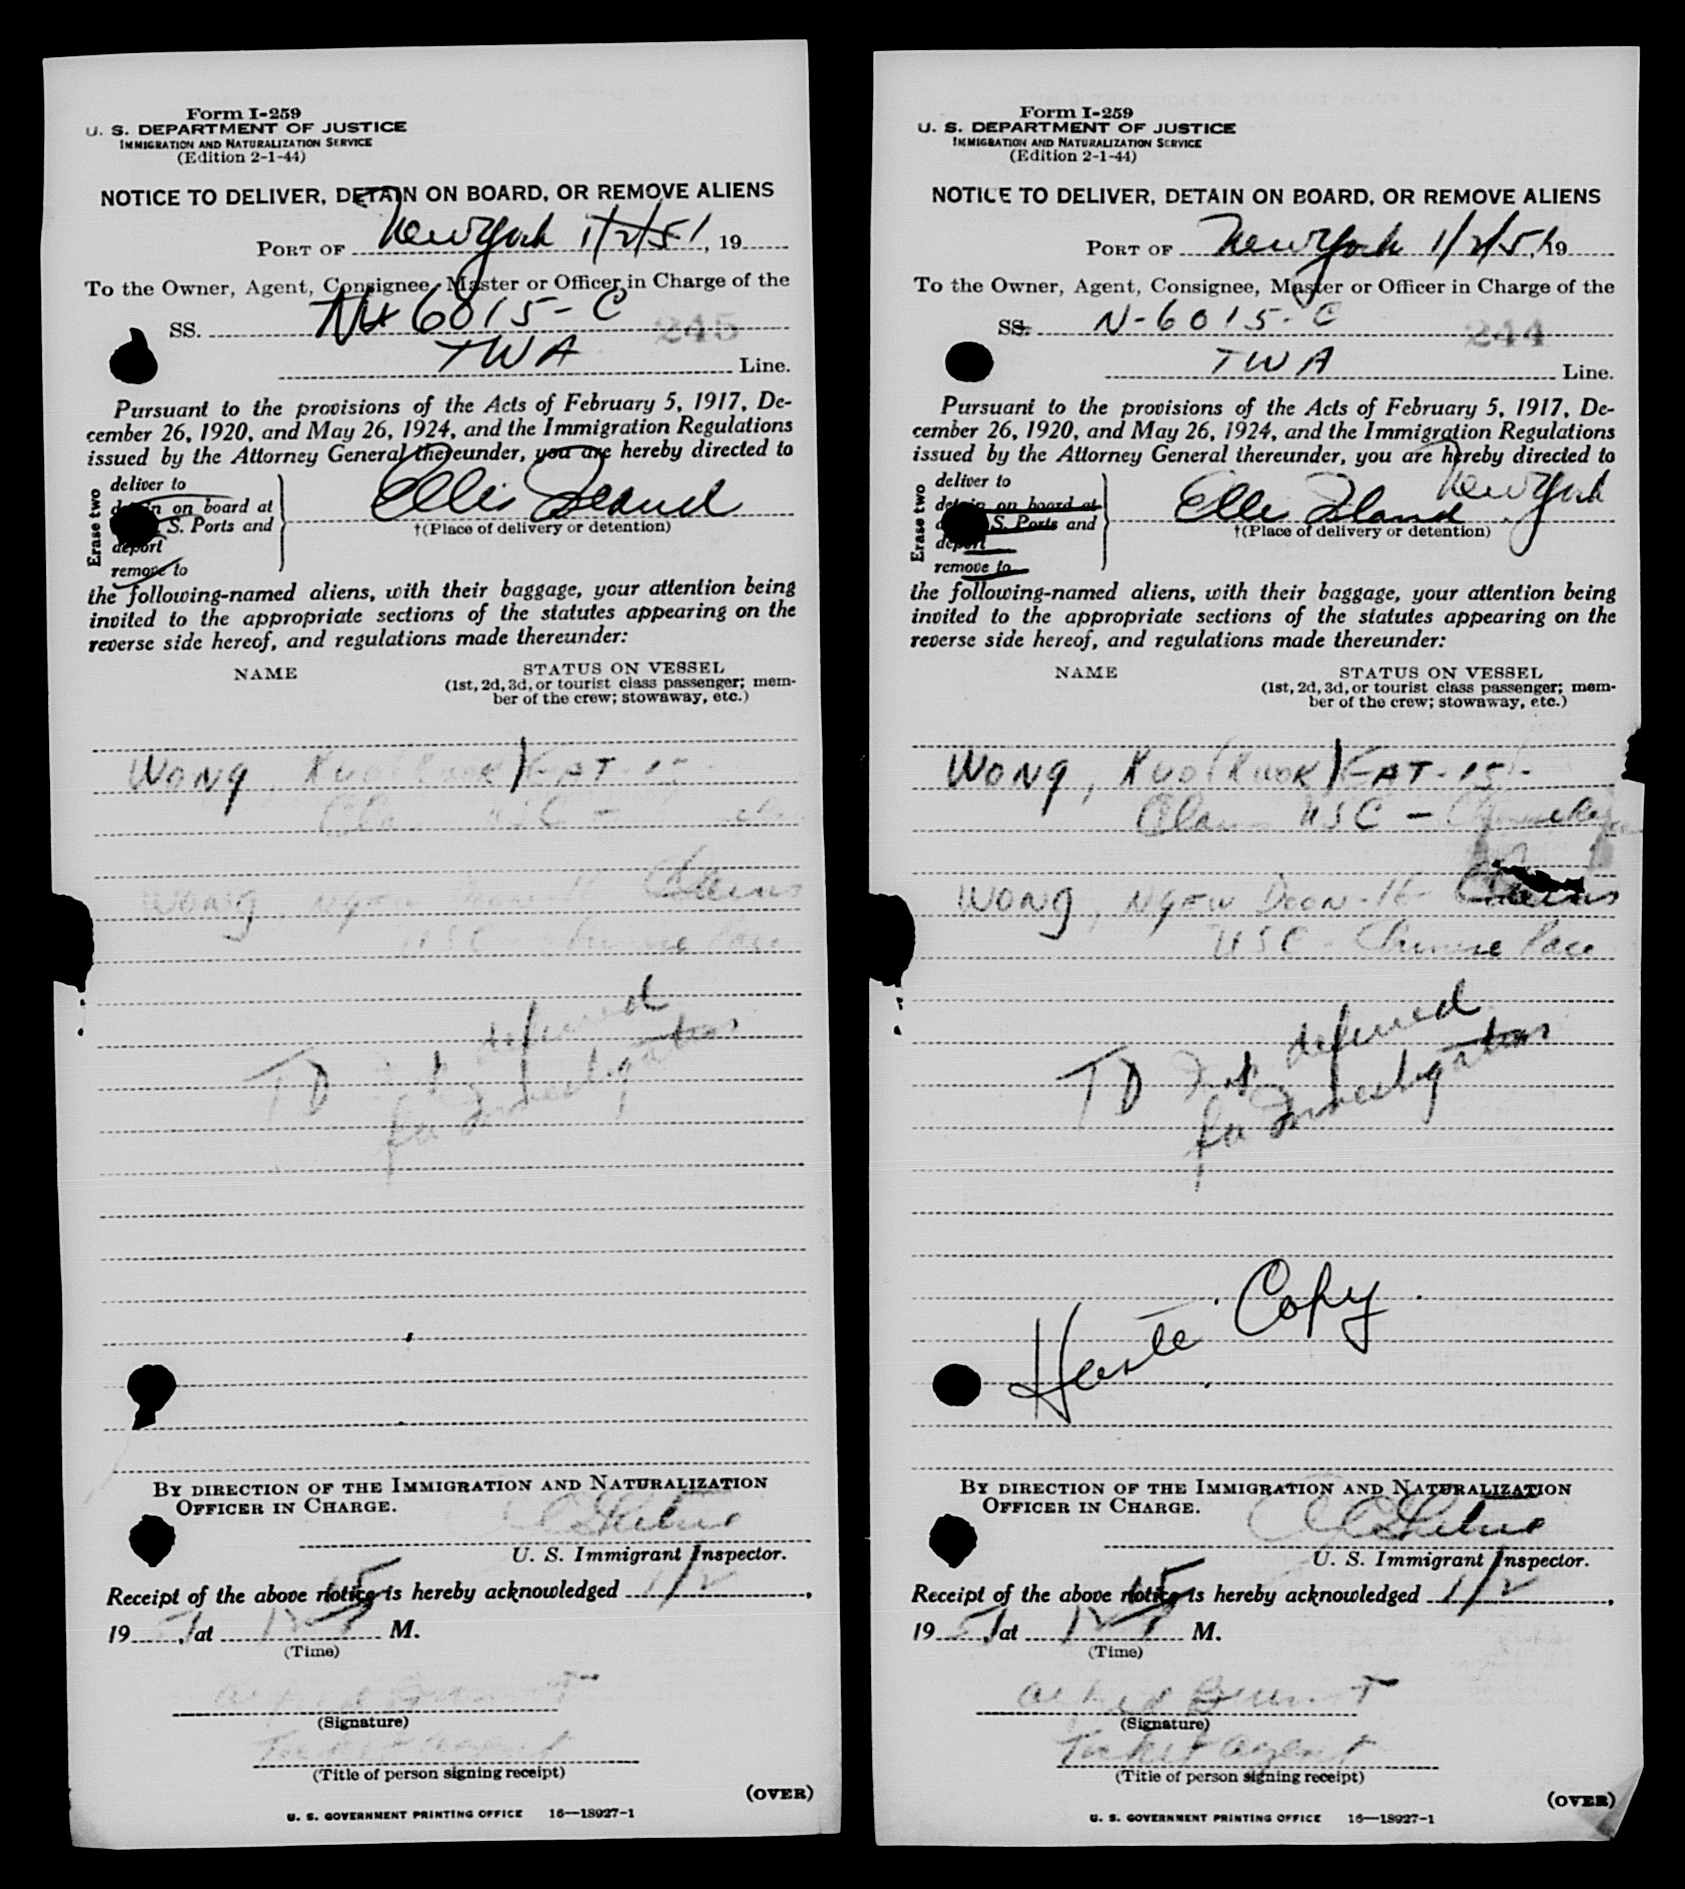 Form I-259
U. S. DEPARTMENT OF JUSTICE
IMMIGRATION AND NATURALIZATION SERVICE
(Edition 2-1-44)
NOTICE TO DELIVER, DETAIN ON BOARD, OR REMOVE ALIENS
PORT OF New York 1/2/51, 19
To the Owner, Agent, Consignee, Master or Officer in Charge of the
SS. 6815-C 245
TWA Line.
Pursuant to the provisions of the Acts of February 5, 1917, De-
cember 26, 1920, and May 26, 1924, and the Immigration Regulations
issued by the Attorney General thereunder, you are hereby directed to
Erase two
deliver to
detain on board at
S. Ports and
deport
remove to
Ellis Island
†(Place of delivery or detention)
the following-named aliens, with their baggage, your attention being
invited to the appropriate sections of the statutes appearing on the
reverse side hereof, and regulations made thereunder:
NAME STATUS ON VESSEL
(1st, 2d, 3d, or tourist class passenger; mem-
ber of the crew; stowaway, etc.)
WONG, KUO (KUOK) FAT - 15
USC -
WONG, Claims
USC - Chinese Race
TD deferred
for Investigation
BY DIRECTION OF THE IMMIGRATION AND NATURALIZATION
OFFICER IN CHARGE.
U. S. Immigrant Inspector.
Receipt of the above notice is hereby acknowledged 1/2,
19 51, at M.
(Time)
(Signature)
Ticket agent
(Title of person signing receipt)
(OVER)
U. S. GOVERNMENT PRINTING OFFICE 16—18927-1
Form I-259
U. S. DEPARTMENT OF JUSTICE
IMMIGRATION AND NATURALIZATION SERVICE
(Edition 2-1-44)
NOTICE TO DELIVER, DETAIN ON BOARD, OR REMOVE ALIENS
PORT OF New York 1/2/51, 19
To the Owner, Agent, Consignee, Master or Officer in Charge of the
SS. N-6815-C 244
TWA Line.
Pursuant to the provisions of the Acts of February 5, 1917, De-
cember 26, 1920, and May 26, 1924, and the Immigration Regulations
issued by the Attorney General thereunder, you are hereby directed to
Erase two
deliver to
detain on board at
S. Ports and
deport
remove to
Ellis Island New York
†(Place of delivery or detention)
the following-named aliens, with their baggage, your attention being
invited to the appropriate sections of the statutes appearing on the
reverse side hereof, and regulations made thereunder:
NAME STATUS ON VESSEL
(1st, 2d, 3d, or tourist class passenger; mem-
ber of the crew; stowaway, etc.)
WONG, KUO (KUOK) FAT - 15 -
Claims USC - Chinese
WONG, NGEW DOON - 16 - Claims
USC - Chinese Race
TD deferred
for Investigation
Copy
BY DIRECTION OF THE IMMIGRATION AND NATURALIZATION
OFFICER IN CHARGE.
U. S. Immigrant Inspector.
Receipt of the above notice is hereby acknowledged 1/2,
19 51, at M.
(Time)
(Signature)
Ticket agent
(Title of person signing receipt)
(OVER)
U. S. GOVERNMENT PRINTING OFFICE 16—18927-1